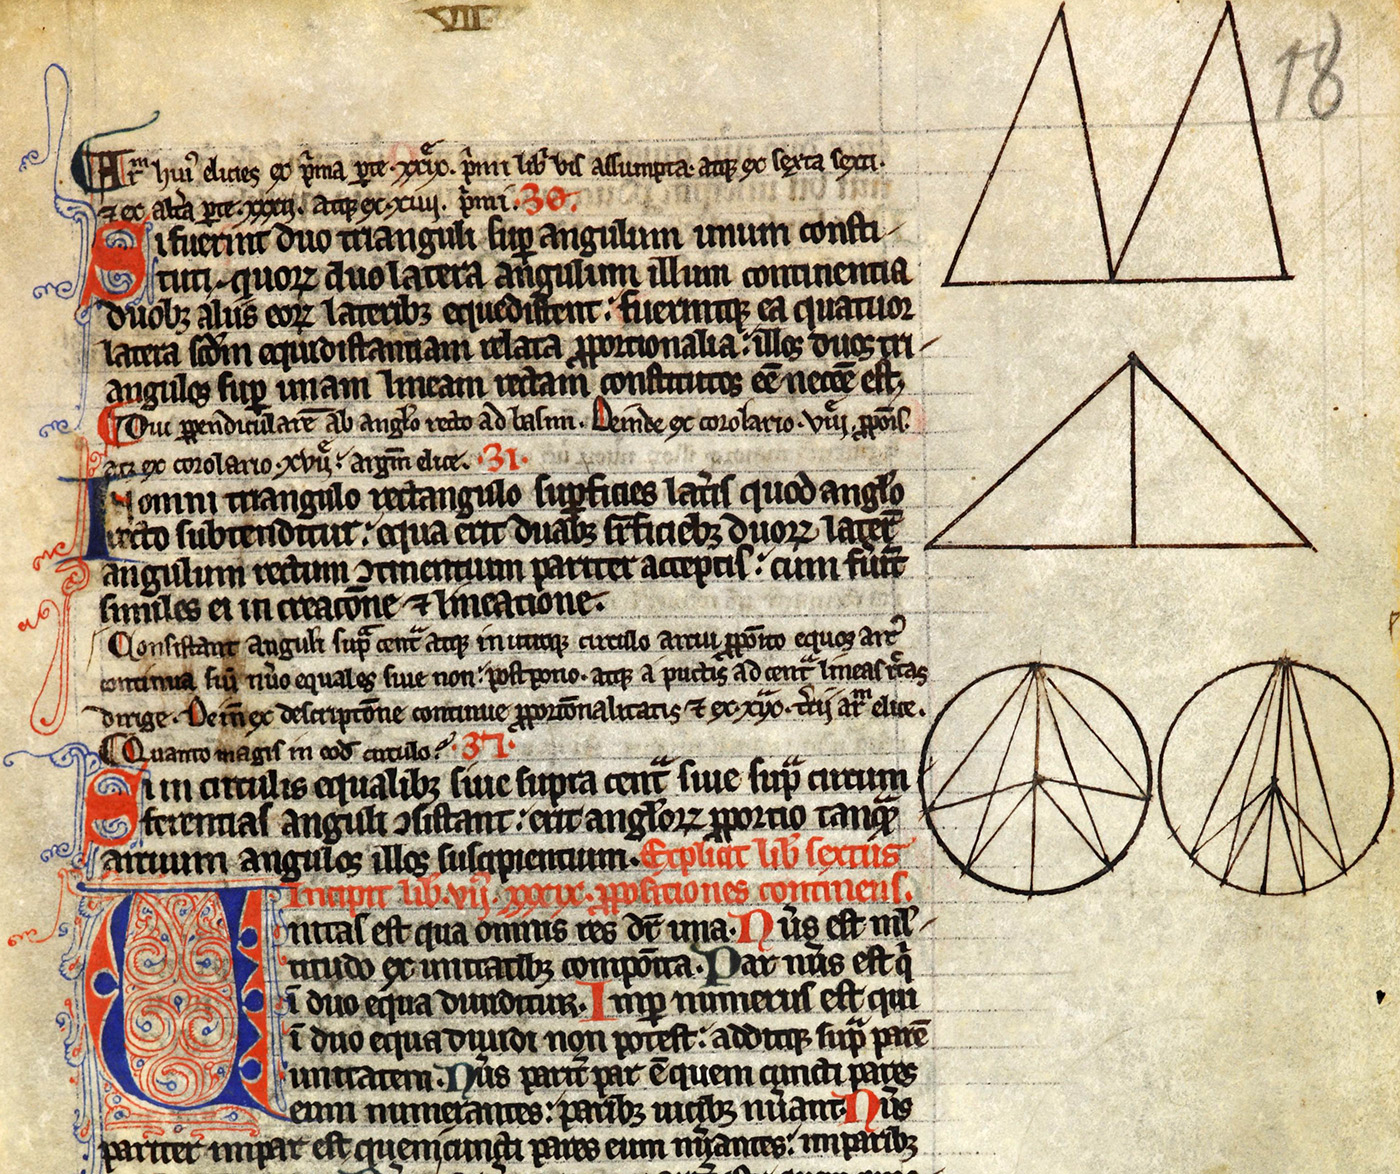 VII
18
Arm hui9 elicies ex p̄ma p̄te xxix. p̄mi lib' vis assumpta. atq; ex sexta sexti.
⁊ ex alt̄a p̄te xxxii. atq; ex xiiii. p̄mi. 30.
Si fuerint duo trianguli sup angulum unum consti
tuti. quoꝝ duo latera angulum illum continentia
duobꝫ aliis eoꝝ lateribꝫ equedistent: fuerintqꝫ ea quatuor
latera scd̄m equidistantiam relata ꝓportionalia: illos duos tri
angulos sup unam lineam rectam constitutos eē neceē est.
Duc ꝑpendicularē ab angl̄o recto ad basim. Deinde ex corolario. viii ꝓpōis.
atqꝫ ex corolario. xvii: argm̄ elice. 31.
In omni triangulo rectangulo supficies lat̄is quod angl̄o
recto subtenditur: equa erit duabꝫ sr̄ficiebꝫ duoꝝ lateꝝ
angulum rectum ↄtinentium pariter acceptis: cum fuer̄t
similes ei in creacōne ⁊ lineacione.
Consistant anguli sup̄ cent̄ atqꝫ in utroqꝫ circulo arcui ꝓpōito equos arc̄
continua siū nūo equales siue non: postpono. atqꝫ a pūctis ad cent̄ lineas rc̄as
dirige. Dein̄ ex descriptōne continue ꝓportōnalitatis ⁊ ex xxx. t̄cii arm elice.
Quanto magis in eod̄ circulo. 32.
Si in circulis equalibꝫ siue supra cent̄ siue sup̄ circum
ferentias anguli ↄsistant: erit angl̄oꝝ ꝓportio tanq̄
arcuum angulos illos suscipientium. Explicit lib' sextus
Incipit lib. vij. xxxix. ꝓpositiones continens.
Unitas est qua omnis res dr̄ una. Nūs est ml̄
titudo ex unitatibꝫ compōita. Par nūs est q̄
ī duo equa diuiditur. Imp numerus est qui
ī duo equa diuidi non potest: additqꝫ sup̄ parē
unitatem. Nūs parit̄ par ē quem cuncti pares
eum numerantes: paribꝫ uicibꝫ nūant. Nūs
pariter impar est quem cuncti pares eum nūantes: imparibꝫ